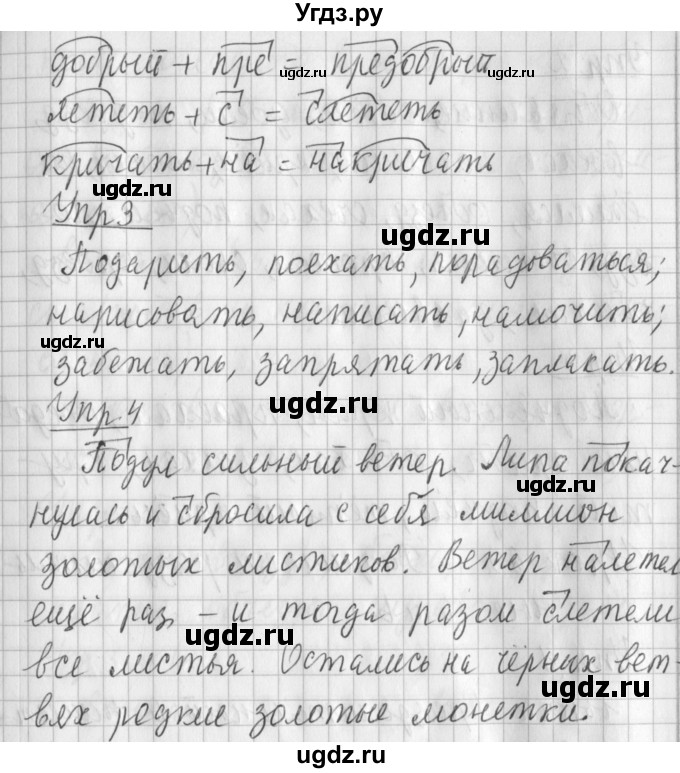 Угдз.ру
добрый + пре = предобрый
лететь + с = слететь
кричать + на = накричать
Упр.3
Подарить, поехать, порадоваться;
нарисовать, написать, намочить;
забежать, запрятать, заплакать.
Упр.4
Подул сильный ветер. Липа покач-
нулась и сбросила с себя миллион
золотых листиков. Ветер налетел
ещё раз – и тогда разом слетели
все листья. Остались на чёрных вет-
вях редкие золотые монетки.
ugdz.ru